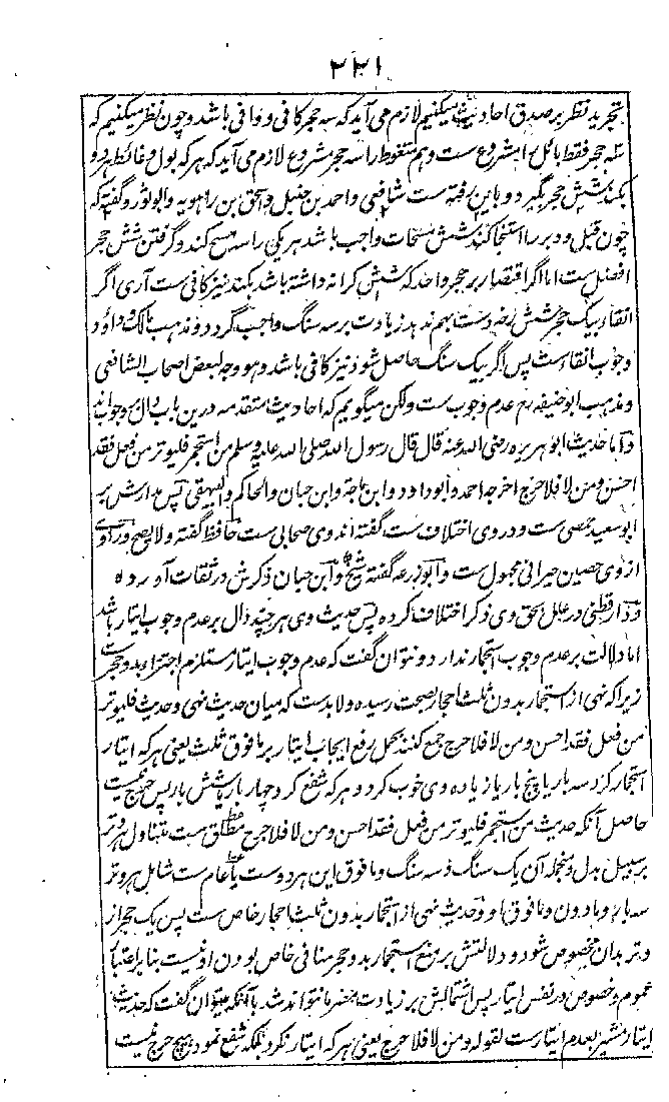 ۲۲۱
تجرید نظر بر صدق احادیث میکنیم لازم می آید که سه حجر کافی و وافی باشد و چون نظر میکنیم که
سه حجر فقط بائل را مشروع ست و هم متغوط را سه حجر مشروع لازم می آید که هر که بول و غائط هر دو
کند شش حجر بگیرد و باین رفته ست شافعی و احمد بن حنبل و اسحق بن راهویه و ابو ثور و گفته که
چون قبل و دبر را استنجا کند شش مسحات واجب باشد هر یکی را سه مسح کند و گرفتن شش حجر
افضل ست اما اگر اقتصار بر حجر واحد که شش کرانه داشته باشد بکند نیز کافی ست آری اگر
انقا بیک حجر شش رخه دست بهم ندهد زیادت بر سه سنگ واجب گردد و مذهب مالک و داؤد
وجوب انقاست پس اگر بیک سنگ حاصل شود نیز کافی باشد و هو وجه لبعض اصحاب الشافعی
و مذهب ابو حنیفه رح عدم وجوب ست ولکن میگویم که احادیث متقدمه درین باب دال بر وجوب اند
و اما حدیث ابو هریره رضی الله عنه قال قال رسول الله صلی الله علیه وسلم من استجمر فلیوتر من فعل فقد
احسن ومن لا فلا حرج اخرجه احمد و ابو داود و ابن ماجة و ابن حبان و الحاکم و البیهقی پس مدارش بر
ابو سعید حمصی ست و در وی اختلاف ست گفته اند وی صحابی ست حافظ گفته ولا یصح و راوی
از وی حصین حبرانی مجهول ست و ابو زرعه گفته شیخ و ابن حبان ذکرش در ثقات آورده
و دارقطنی در علل الحق وی ذکر اختلاف کرده پس حدیث وی هر چند دال بر عدم وجوب ایتار باشد
اما دلالت بر عدم وجوب استجمار ندارد و نتوان گفت که عدم وجوب ایتار مستلزم اجتزا بدو حجرست
زیرا که نهی از استجمار بدون ثلث احجار بصحت رسیده و لابدست که میان حدیث نهی و حدیث فلیوتر
من فعل فقد احسن ومن لا فلا حرج جمع کنند بحمل رفع ایجاب ایتار بر مافوق ثلث یعنی هر که ایتار
استجمار کرد سه بار یا پنج بار یا زیاده وی خوب کرد و هر که شفع کرد چهار بار یا شش بار پس حرج نیست
حاصل آنکه حدیث من استجمر فلیوتر من فعل فقد احسن ومن لا فلا حرج مطلق ست متناول هر وتر
بر سبیل بدل و منجمله آن یک سنگ و سه سنگ و مافوق این هر دوست یا عام ست شامل هر وتر
سه بار و مادون و مافوق او و حدیث نهی از استجمار بدون ثلث احجار خاص ست پس یک حجر از
وتر بدان مخصوص شود و دلالتش بر منع استجمار بدو حجر منافی خاص بودن او نیست بنا بر اعتبار
عموم و خصوص در نفس ایتار پس اشتمالش بر زیادت مضر ما نتواند شد با آنکه میتوان گفت که حدیث
ایتار مشیر بعدم ایتارست لقوله ومن لا فلا حرج یعنی هر که ایتار نکرد بلکه شفع نمود هیچ حرج نیست